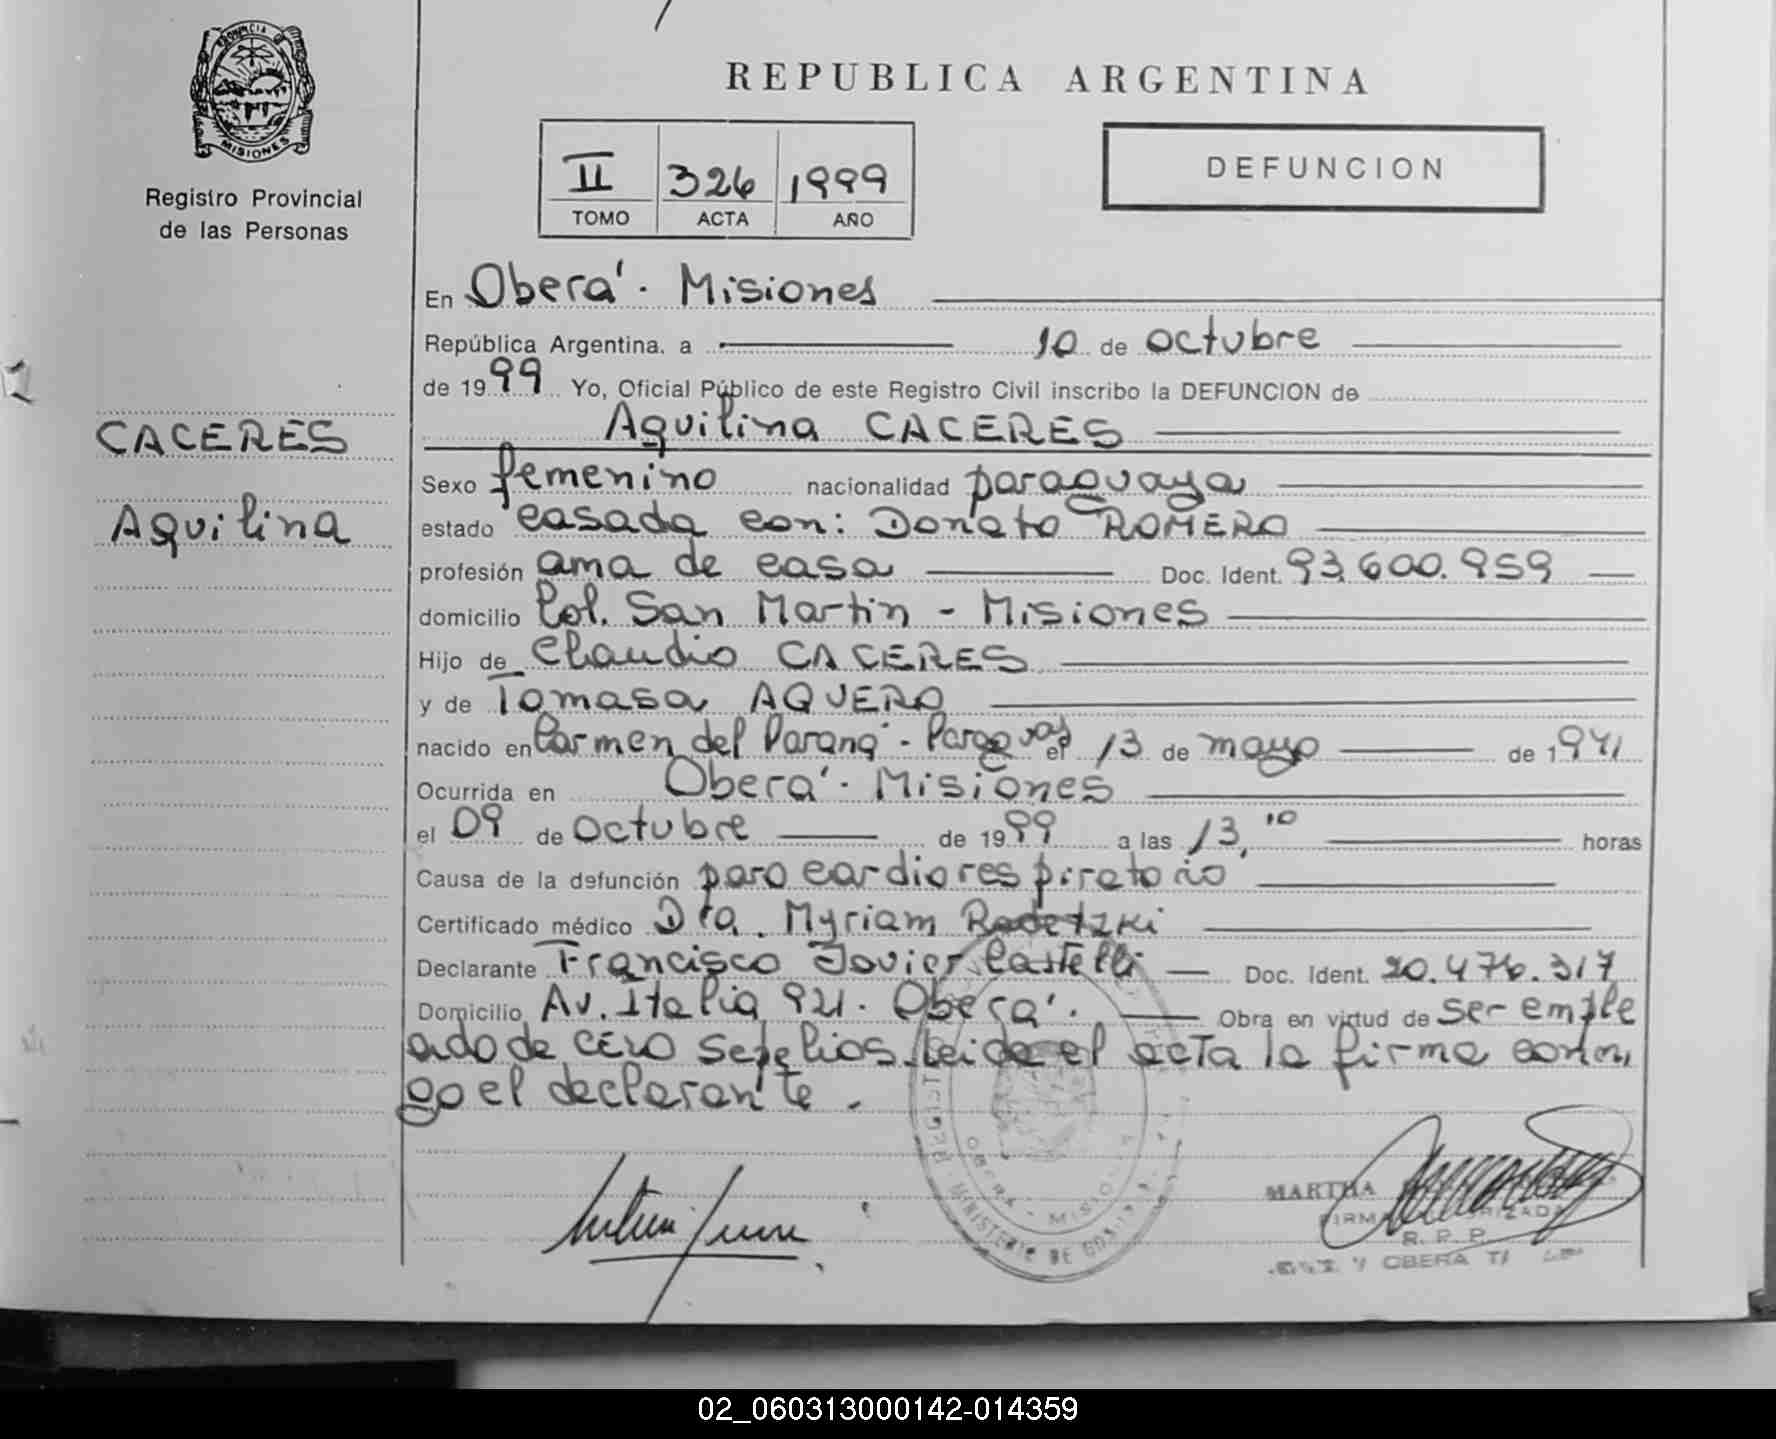 PROVINCIA DE
MISIONES
Registro Provincial
de las Personas
CACERES
Aquilina
REPUBLICA ARGENTINA
II 326 1999
TOMO ACTA AÑO
DEFUNCION
En Oberá. Misiones
República Argentina, a 10 de octubre
de 1999 Yo, Oficial Público de este Registro Civil inscribo la DEFUNCION de
Aquilina CACERES
Sexo femenino nacionalidad paraguaya
estado casada con: Donato ROMERO
profesión ama de casa Doc. Ident. 93.600.959
domicilio Col. San Martin - Misiones
Hijo de Claudio CACERES
y de Tomasa AQUERO
nacido en Carmen del Paraná - Paraguay el 13 de mayo de 1941
Ocurrida en Oberá. Misiones
el 09 de octubre de 1999 a las 13,10 horas
Causa de la defunción paro cardiorespiratorio
Certificado médico Dra. Myriam Radetzki
Declarante Francisco Javier Castelli Doc. Ident. 20.476.317
Domicilio Av. Italia 921. Oberá. Obra en virtud de ser emple
ado de cero sepelios. Leida el acta la firma conmi
go el declarante.
OBERA - MISIONES
MINISTERIO DE GOBIERNO
MARTHA
FIRMA AUTORIZADA
R. P. P.
OBERA
02_060313000142-014359